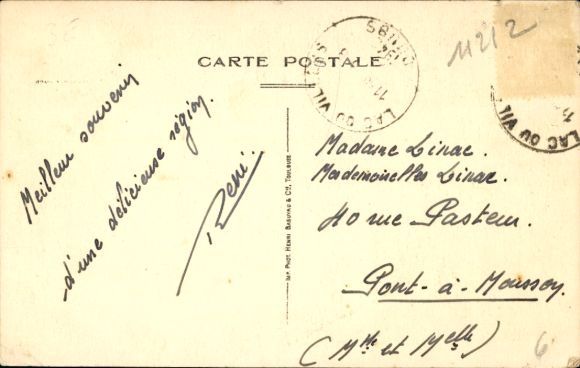 CARTE POSTALE
11212
Meilleur souvenir
d'une délicieuse région.
René..
IMP. PHOT. HENRI BASUYAU & Cie, TOULOUSE
LAC OU VIL
LAC OU VIL
Madame Linac.
Mesdemoiselles Linac.
40 rue Pasteur.
Pont-à-Mousson.
(Mme et Melle)
6